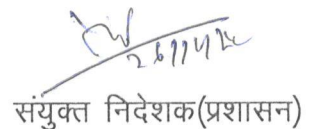 संयुक्त निदेशक(प्रशासन)